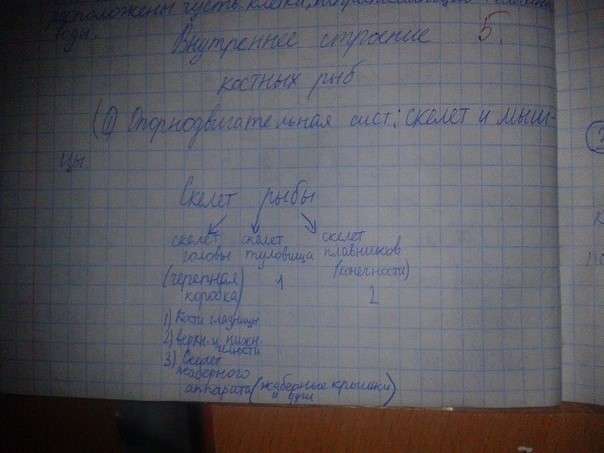 расположены густь клетки,
воды.
Внутреннее строение 5.
костных рыб
(1) Опорнодвигательная сист: скелет и мыш-
цы
Скелет рыбы
скелет скелет скелет
головы туловища плавников
(черепная 1 (конечности)
коробка) 2
1) Кости глазницы
2) верхн. и нижн.
челюсти
3) Скелет
жаберного
аппарата (жаберные крышки
и дуги)